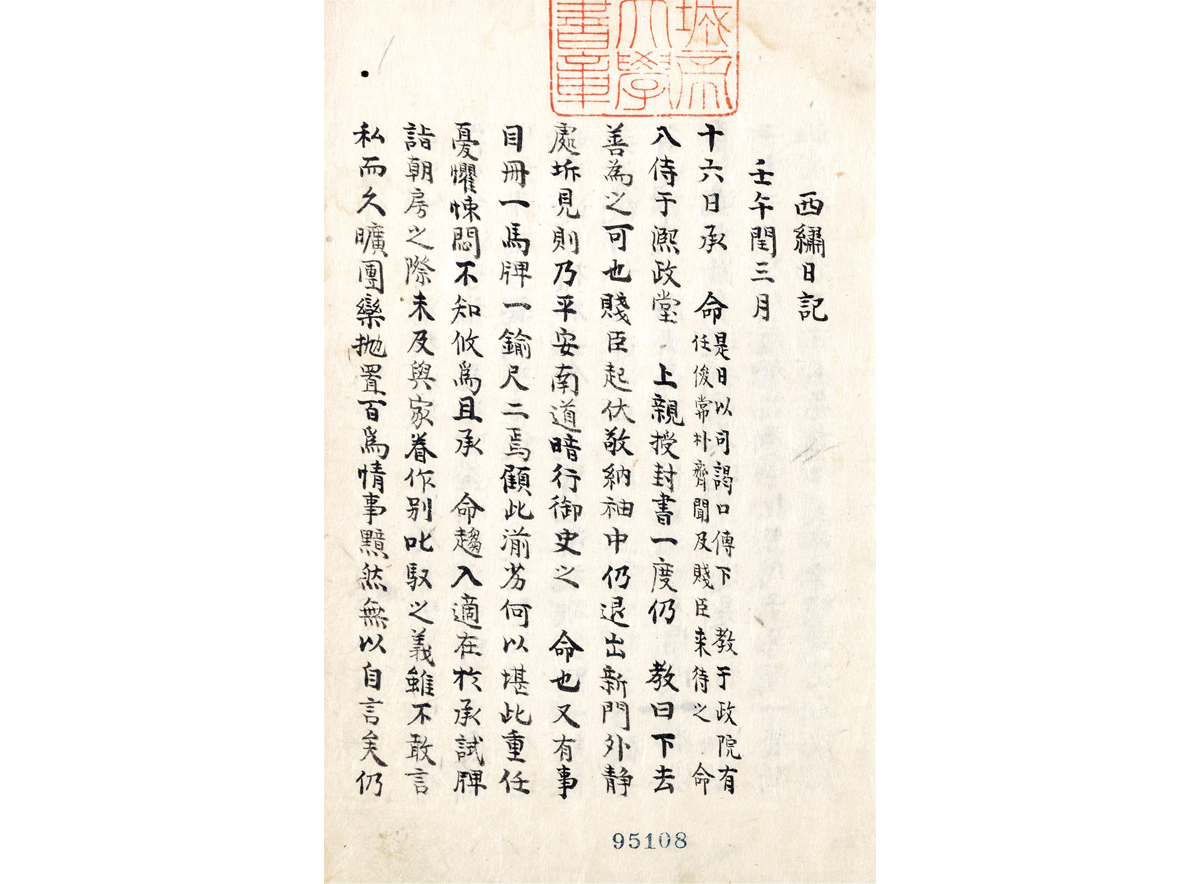 城帝
大學
書章
西繡日記
壬午閏三月
十六日承 命是日以司謁口傳下 教于政院有
任俊常朴齊聞及賤臣来待之 命
入侍于熙政堂 上親授封書一度仍 教曰下去
善為之可也賤臣起伏敬納袖中仍退出新門外静
處坼見則乃平安南道暗行御史之 命也又有事
目冊一馬牌一鍮尺二焉顧此湔劣何以堪此重任
憂懼悚悶不知攸爲且承 命趨入適在於承試牌
詣朝房之際未及與家眷作别叱馭之義雖不敢言
私而久曠團欒抛置百爲情事黯然無以自言矣仍
95108